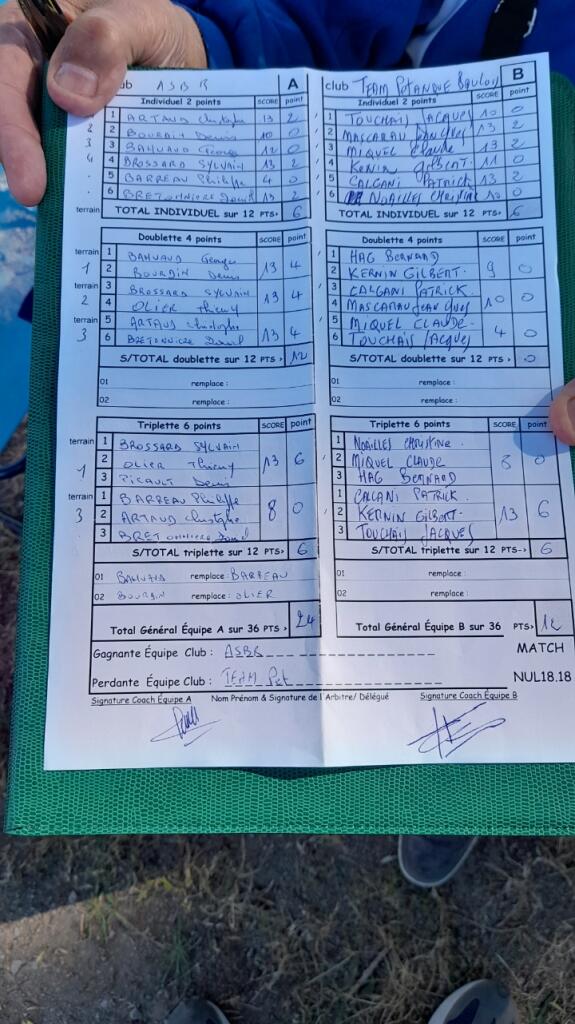 ub ASBR A
Individuel 2 points SCORE point
1 ARTAUD Christophe 13 2
2 BOURDIN Denis 10 0
3 BAHUAUD Georges 12 0
4 BROSSARD SYLVAIN 13 2
5 BARREAU Philippe 4 0
6 BRETONNIERE David 13 2
terrain TOTAL INDIVIDUEL sur 12 PTS: 6
club TEAM PETANQUE B
Individuel 2 points SCORE point
1 TOUCHAIS JACQUES 10 0
2 MASCARAU JEAN YVES 13 2
3 MIQUEL Claude 13 2
4 KERNIN GILBERT 11 0
5 CALGANI PATRICK 13 2
6 NOAILLES CHRISTINE 10 0
TOTAL INDIVIDUEL sur 12 PTS: 6
Doublette 4 points SCORE point
terrain 1 BAHUAUD Georges
1 2 BOURDIN Denis 13 4
terrain 3 BROSSARD SYLVAIN
2 4 OLIER Thierry 13 4
terrain 5 ARTAUD Christophe
3 6 BRETONNIERE David 13 4
S/TOTAL doublette sur 12 PTS > 12
01 remplace :
02 remplace :
Doublette 4 points SCORE point
1 HAG BERNARD
2 KERNIN GILBERT. 9 0
3 CALGANI PATRICK.
4 MASCARAU JEAN YVES 10 0
5 MIQUEL CLAUDE.
6 TOUCHAIS JACQUES 4 0
S/TOTAL doublette sur 12 PTS > 0
01 remplace :
02 remplace :
Triplette 6 points SCORE point
terrain 1 BROSSARD SYLVAIN
1 2 OLIER Thierry 13 6
3 PICAUT Denis
terrain 1 BARREAU Philippe
3 2 ARTAUD Christophe 8 0
3 BRETONNIERE David
S/TOTAL triplette sur 12 PTS> 6
01 BAHUAUD remplace : BARREAU
02 BOURDIN remplace : OLIER
Total Général Équipe A sur 36 PTS > 24
Triplette 6 points SCORE point
1 NOAILLES CHRISTINE.
2 MIQUEL CLAUDE 8 0
3 HAG BERNARD
1 CALGANI PATRICK.
2 KERNIN GILBERT. 13 6
3 TOUCHAIS JACQUES
S/TOTAL triplette sur 12 PTS-> 6
01 remplace :
02 remplace :
Total Général Équipe B sur 36 PTS> 12
Gagnante Équipe Club : ASBR MATCH
Perdante Équipe Club : TEAM Pet NUL18.18
Signature Coach Équipe A Nom Prénom & Signature de l'Arbitre/ Délégué Signature Coach Équipe B